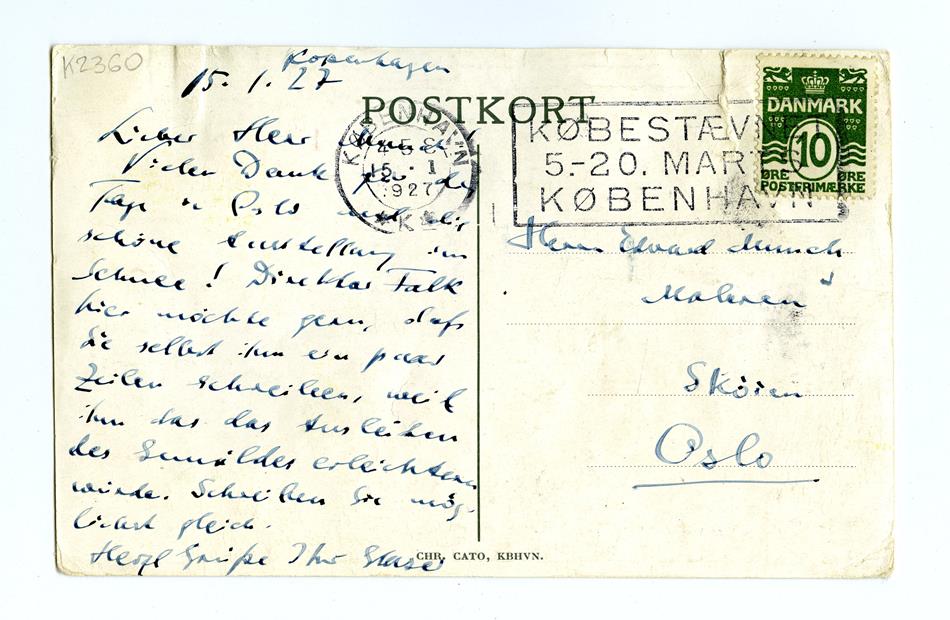 K2360
Kopenhagen
15. 1. 27
Lieber Herr Munch!
Vielen Dank für die
Tage in Oslo und die
schöne Ausstellung im
Schnee! Direktor Falk
hier möchte gern, daß
Sie selbst ihm ein paar
Zeilen schreiben, weil
ihm das das Ausleihen
des Gemäldes erleichtern
würde. Schreiben Sie mög-
lichst gleich.
Herzl Grüße Ihr Glaser
POSTKORT
KØBENHAVN
15. - 1
1927
K
KØBESTÆVNET
5.-20. MARTS
KØBENHAVN
DANMARK
10
ØRE ØRE
POSTFRIMÆRKE
Herrn Edvard Munch
Maleren
Sköien
Oslo
CHR. CATO, KBHVN.